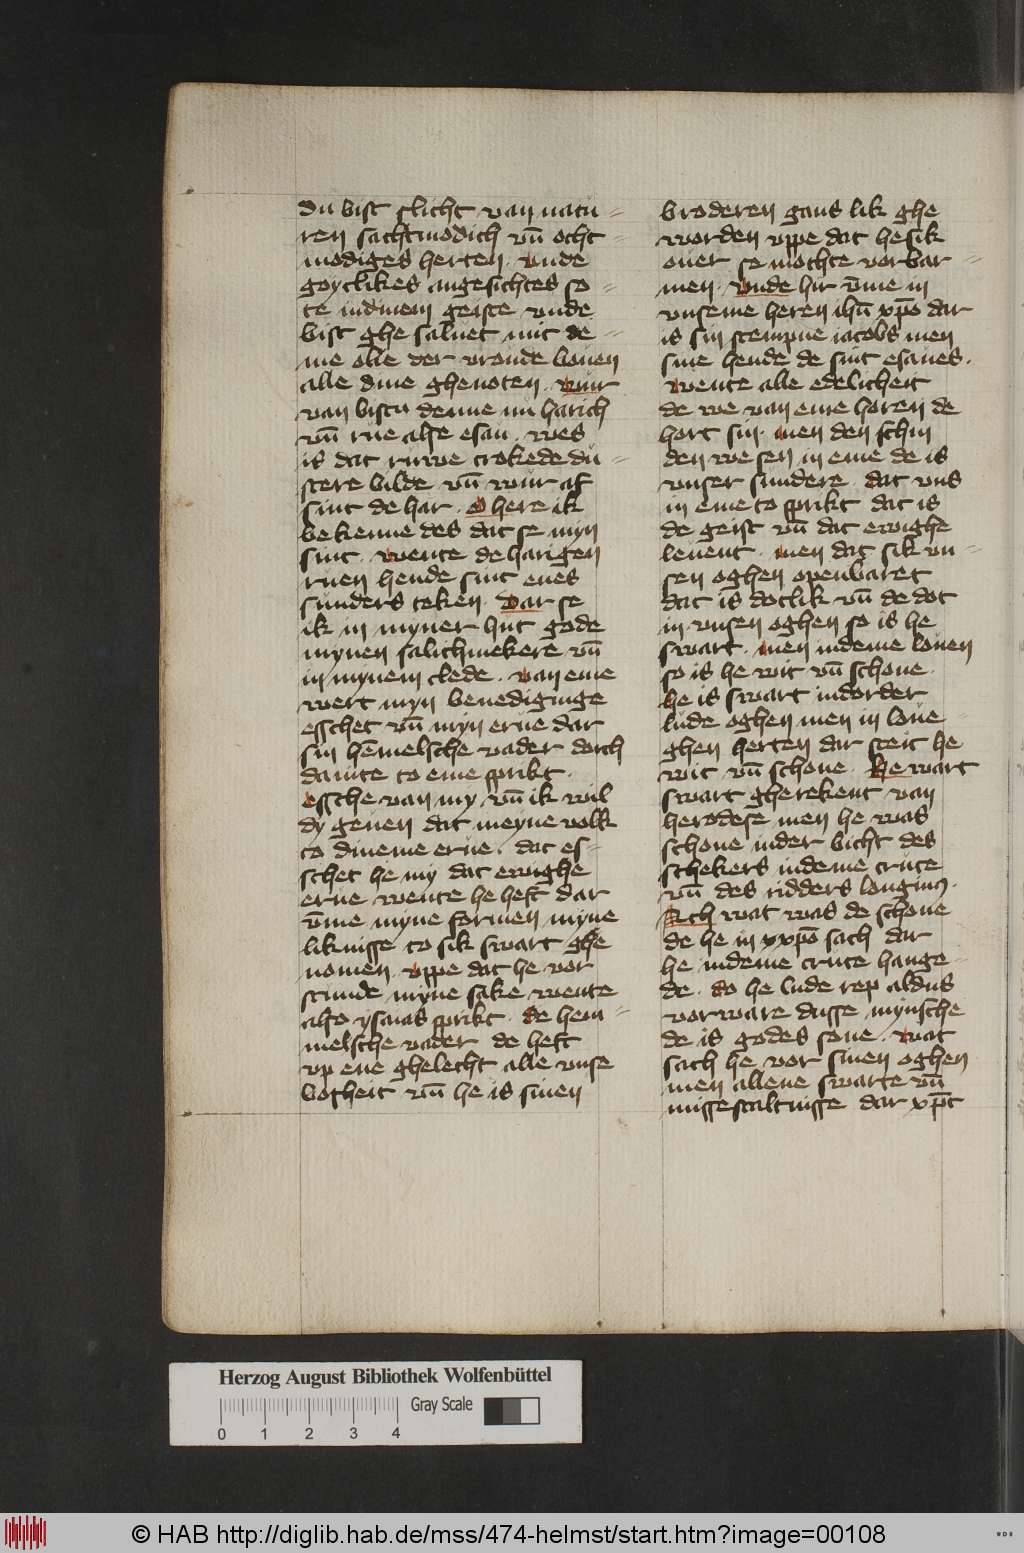 du bist slicht van natu=
ren sachtmodich vn̄ ocht=
modiges herten · vnde
goytlikes angesichtes so=
te indinem geiste vnde
bist ghe saluet mit de=
me olle der vroude bouen
alle dine ghenoten · wur
van bistu denne nu harich
vn̄ rue alse esau · wes
is dat ruwe crokede du=
stere bilde vn̄ wur af
sint de har · O here ik
bekenne des dat se myn
sint · wente de harigen
ruen hende sint enes
sunders teken · Dar se
ik in myner hut gode
mynen salichmekere vn̄
in mynem clede · van eme
wert myn benediginge
esschet vn̄ myn erue dar
sin hēmelsche vader dorch
dauite to eme sprikt ·
essche van my vn̄ ik wil
dy geuen dat meyne volk
to dineme erue · dat es=
schet he my dat ewighe
erue wente he heft dar
v̄me myne formen myne
liknisse to sik swart ghe
nomen · vppe dat he vor
stunde myne sake wente
also ysaias sprikt · de hem=
melsche vader de heft
vp ene ghelecht alle vnse
bosheit vn̄ he is sinen
broderen gans lik ghe
worden vppe dat he sik
ouer se mochte vorbar=
men · vnde hir v̄me in
vnseme heren ihū xp̄o dar
is sin stempne iacobs men
sine hende de sint esaues ·
wente alle edelicheit
de we van eme horen de
hort sin · men den schin
den we sen in eme de is
vnser sundere · dat vns
in eme to sprikt dat is
de geist vn̄ dat ewighe
leuent · men dat sik vn=
sen oghen openbaret
dat is dotlik vn̄ de dot
in vnsen oghen so is he
swart · men indeme louen
so is he wit vn̄ schone ·
he is swart indorder
lude oghen men in loue=
ghen herten dar steit he
wit vn̄ schone · He wart
swart gherekent van
herodese men he was
schone inder bicht des
schekers indeme cruce
vn̄ des ridders longinus ·
Ach wat was de schone
de he in xp̄o sach dar
he indeme cruce hange=
de · do he lude rep aldus
vorware dusse mynsche
de is godes sone · wat
sach he vor sinen oghen
men allene swarte vn̄
missestaltnisse dar xp̄c
Herzog August Bibliothek Wolfenbüttel
0 1 2 3 4 Gray Scale
© HAB http://diglib.hab.de/mss/474-helmst/start.htm?image=00108
WDB